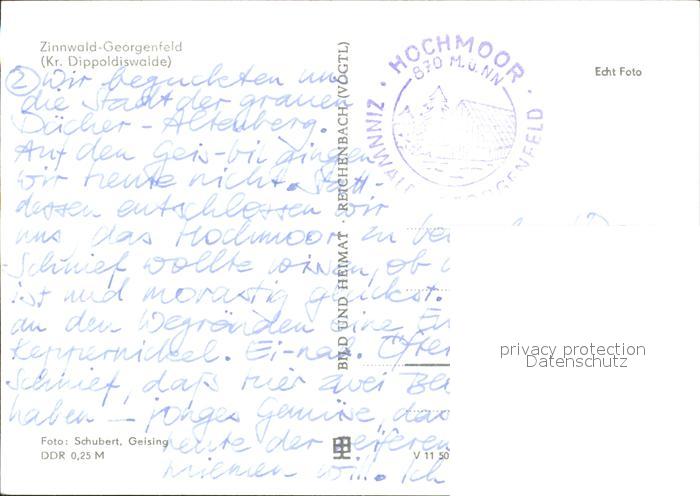 Zinnwald-Georgenfeld
(Kr. Dippoldiswalde)
② Wir beguckten uns
die Stadt der grauen
Dächer - Altenberg.
Auf den Geis- gingen
wir heute nicht. Statt-
dessen entschlossen wir
uns das Hochmoor zu
Schnief wollte wissen, ob
ist und morastig gluckst.
an den Wegrändern eine
Keppernickel. Ei-nal. Öfter
Schnief, daß hier zwei
haben – junges Gemüse, das
heute der
will. Ich
Foto: Schubert, Geising
DDR 0,25 M
BILD UND HEIMAT · REICHENBACH (VOGTL)
V 11 50
HOCHMOOR
870 M.ü.NN
ZINNWALD GEORGENFELD
Echt Foto
privacy protection
Datenschutz